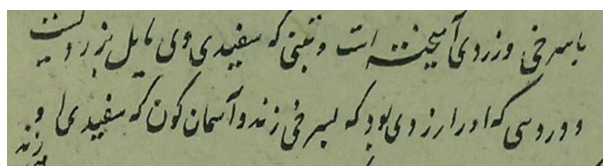 با سرخی و زردی آمیخته است و تبتی که سفیدی وی مایل بزردیست
و وروسی که اورا زردی بود که بسرخی زند و آسمان کون که سفیدی او
زند